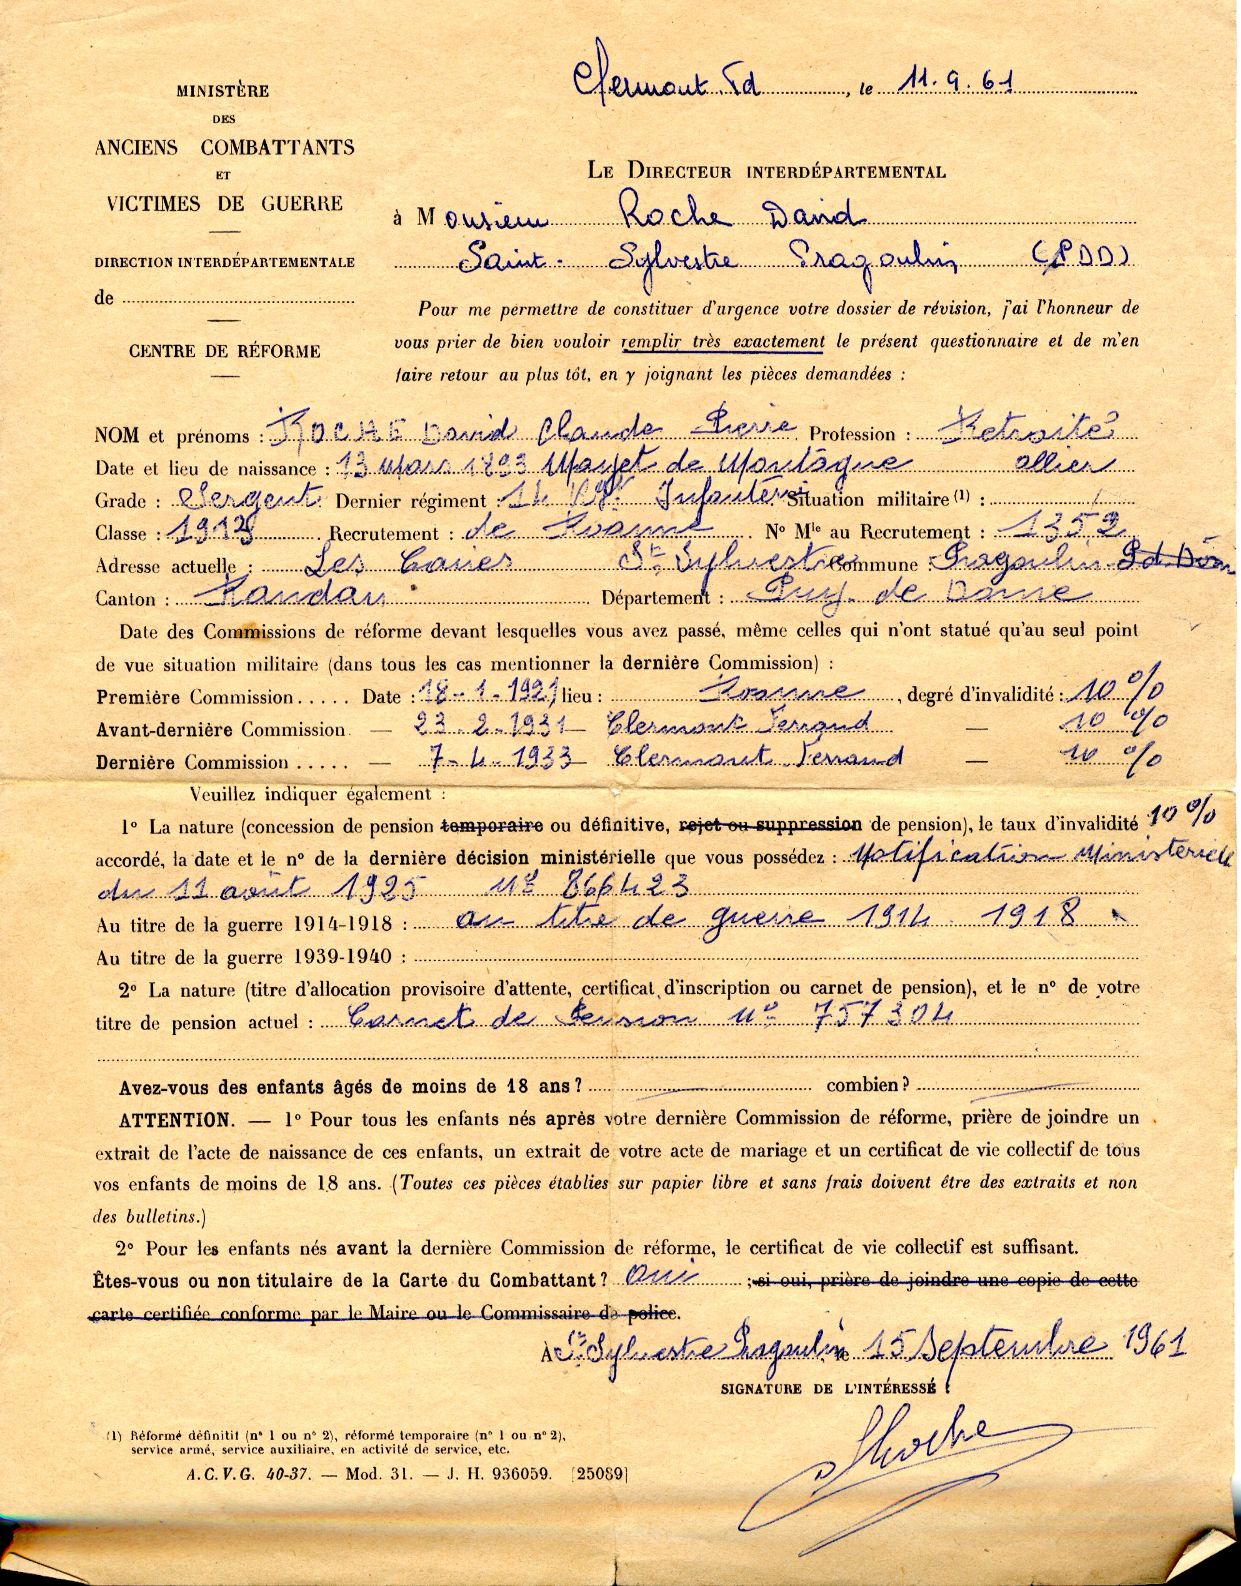 Clermont. Fd, le 11. 9. 61
MINISTÈRE
DES
ANCIENS COMBATTANTS
ET
VICTIMES DE GUERRE
DIRECTION INTERDÉPARTEMENTALE
de
CENTRE DE RÉFORME
LE DIRECTEUR INTERDÉPARTEMENTAL
à Monsieur Roche David
Saint-Sylvestre Pragoulin (PDD)
Pour me permettre de constituer d'urgence votre dossier de révision, j'ai l'honneur de
vous prier de bien vouloir remplir très exactement le présent questionnaire et de m'en
faire retour au plus tôt, en y joignant les pièces demandées :
NOM et prénoms : ROCHE David Claude Pierre Profession : Retraité
Date et lieu de naissance : 13 Mars 1893 Mayet de Montagne allier
Grade : Sergent Dernier régiment : 14 Rgt Infanterie Situation militaire (1) :
Classe : 1913 Recrutement : de Roanne N° Mle au Recrutement : 1359
Adresse actuelle : Les St Sylvestre Commune : Pragoulin P.d.Dôme
Canton : Randan Département : Puy. de Dome
Date des Commissions de réforme devant lesquelles vous avez passé, même celles qui n'ont statué qu'au seul point
de vue situation militaire (dans tous les cas mentionner la dernière Commission) :
Première Commission..... Date : 18-1-1921 lieu : Roanne, degré d'invalidité : 10 %
Avant-dernière Commission. — 23.2.1931 — Clermont Ferrand — 10 %
Dernière Commission ..... — 7-4-1933 — Clermont Ferrand — 10 %
Veuillez indiquer également :
1° La nature (concession de pension temporaire ou définitive, rejet ou suppression de pension), le taux d'invalidité 10 %
accordé, la date et le n° de la dernière décision ministérielle que vous possédez : Notification Ministérielle
du 11 août 1925 N° 866423
Au titre de la guerre 1914-1918 : au titre de guerre 1914. 1918
Au titre de la guerre 1939-1940 :
2° La nature (titre d'allocation provisoire d'attente, certificat d'inscription ou carnet de pension), et le n° de votre
titre de pension actuel : Carnet de Pension N° 757304
Avez-vous des enfants âgés de moins de 18 ans ? combien ?
ATTENTION. — 1° Pour tous les enfants nés après votre dernière Commission de réforme, prière de joindre un
extrait de l'acte de naissance de ces enfants, un extrait de votre acte de mariage et un certificat de vie collectif de tous
vos enfants de moins de 18 ans. (Toutes ces pièces établies sur papier libre et sans frais doivent être des extraits et non
des bulletins.)
2° Pour les enfants nés avant la dernière Commission de réforme, le certificat de vie collectif est suffisant.
Êtes-vous ou non titulaire de la Carte du Combattant ? oui ; si oui, prière de joindre une copie de cette
carte certifiée conforme par le Maire ou le Commissaire de police.
À St Sylvestre Pragoulin, le 15 Septembre 1961
SIGNATURE DE L'INTÉRESSÉ :
Roche
(1) Réformé définitif (n° 1 ou n° 2), réformé temporaire (n° 1 ou n° 2),
service armé, service auxiliaire, en activité de service, etc.
A.C.V.G. 40-37. — Mod. 31. — J. H. 936059. [25089]